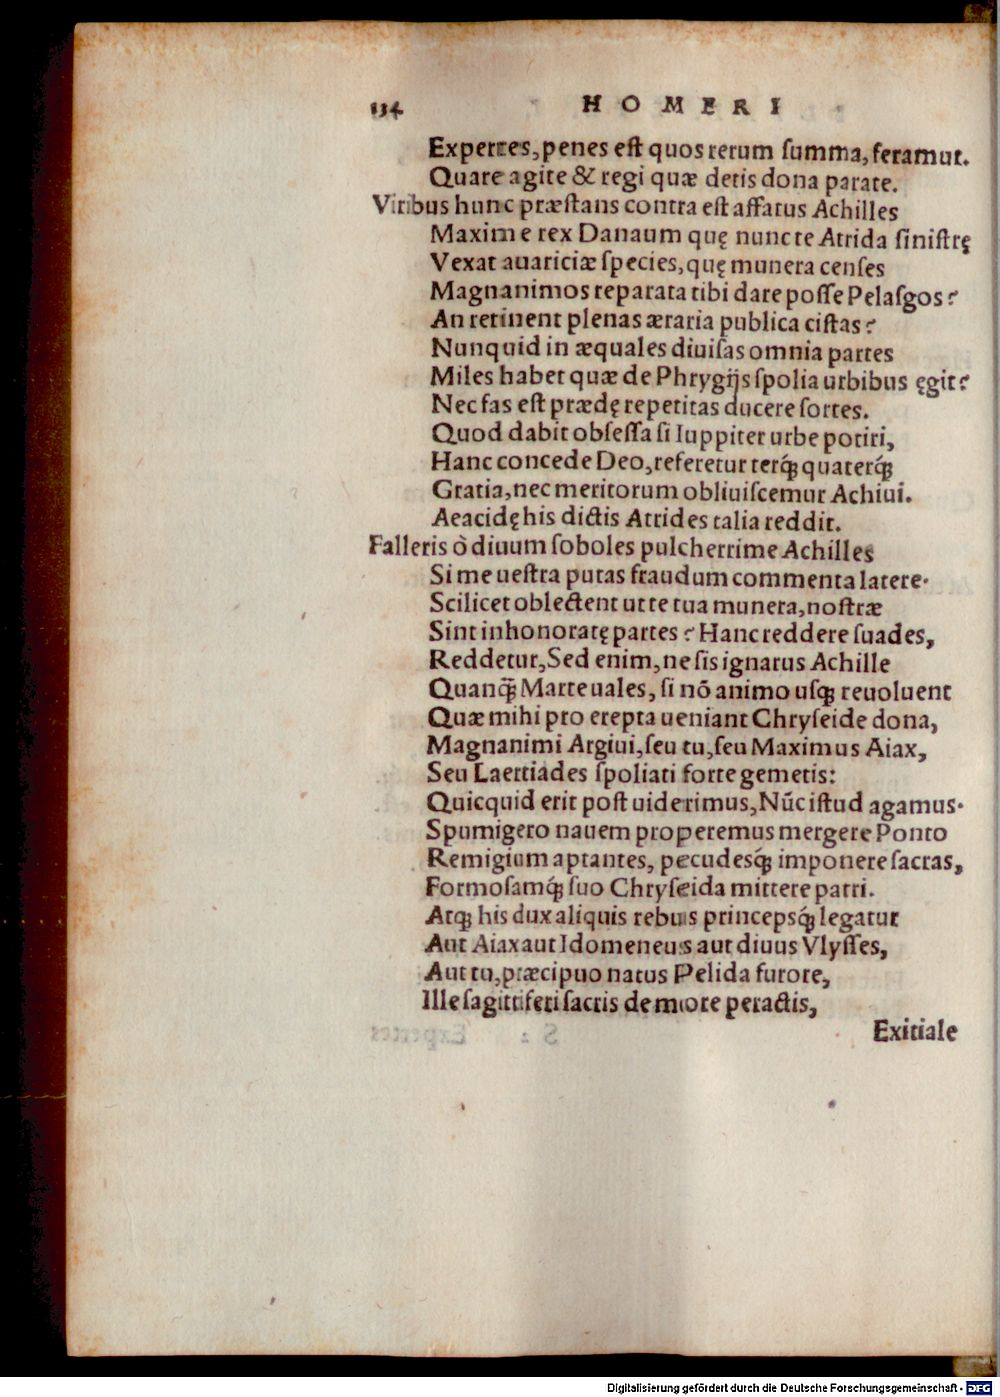 134 HOMERI
Expertes, penes est quos rerum summa, feramut.
Quare agite & regi quæ detis dona parate.
Viribus hunc præstans contra est affatus Achilles
Maxime rex Danaum quę nunc te Atrida sinistrę
Vexat auariciæ species, quę munera censes
Magnanimos reparata tibi dare posse Pelasgos?
An retinent plenas æraria publica cistas?
Nunquid in æquales diuisas omnia partes
Miles habet quæ de Phrygijs spolia urbibus ęgit?
Nec fas est prædę repetitas ducere sortes.
Quod dabit obsessa si Iuppiter urbe potiri,
Hanc concede Deo, referetur terq́ꝫ quaterq́ꝫ
Gratia, nec meritorum obliuiscemur Achiui.
Aeacidę his dictis Atrides talia reddit.
Falleris ò diuum soboles pulcherrime Achilles
Si me uestra putas fraudum commenta latere.
Scilicet oblectent ut te tua munera, nostræ
Sint inhonoratę partes? Hanc reddere suades,
Reddetur, Sed enim, ne sis ignarus Achille
Quanq̃ Marte uales, si nō animo usqꝫ reuoluent
Quæ mihi pro erepta ueniant Chryseide dona,
Magnanimi Argiui, seu tu, seu Maximus Aiax,
Seu Laertiades spoliati forte gemetis:
Quicquid erit post uiderimus, Nūc istud agamus.
Spumigero nauem properemus mergere Ponto
Remigium aptantes, pecudesq́ꝫ imponere sacras,
Formosamq́ꝫ suo Chryseida mittere patri.
Atqꝫ his dux aliquis rebus princepsq́ꝫ legatur
Aut Aiax aut Idomeneus aut diuus Vlysses,
Aut tu, præcipuo natus Pelida furore,
Ille sagittiferi sacris de more peractis,
Exitiale
Digitalisierung gefördert durch die Deutsche Forschungsgemeinschaft - DFG